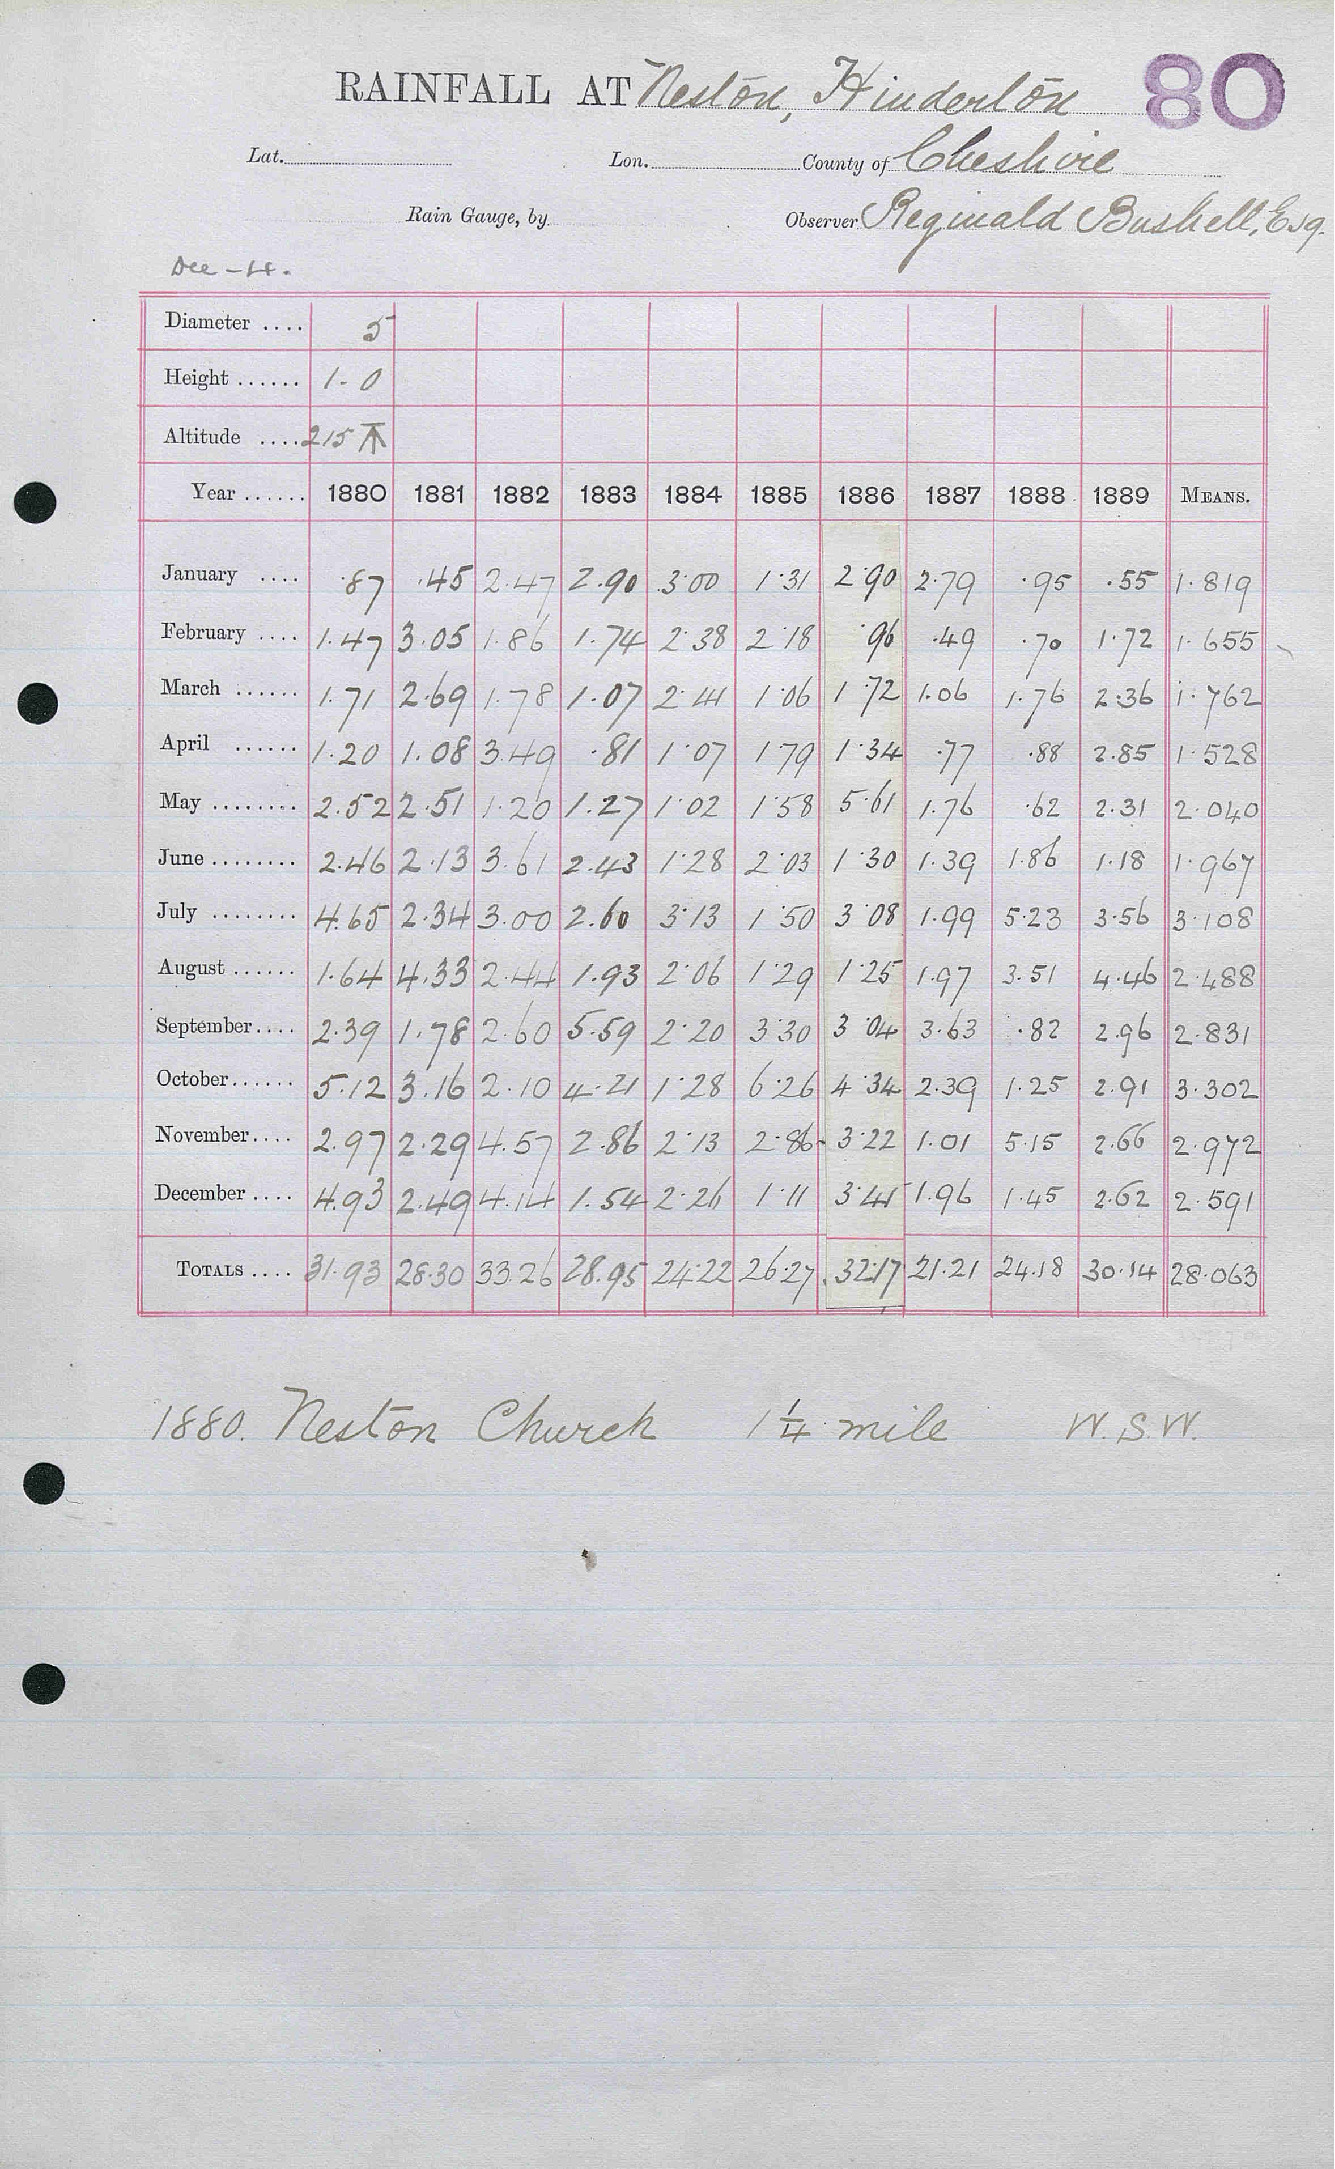 RAINFALL AT Neston, Hinderton 80
Lat. Lon. County of Cheshire
Rain Gauge, by Observer Reginald Bushell, Esq.
Diameter .... 5
Height ...... 1-0
Altitude .... 215
Year ...... 1880 1881 1882 1883 1884 1885 1886 1887 1888 1889 MEANS.
January .... .87 .45 2.47 2.90 3.00 1.31 2.90 2.79 .95 .55 1.819
February .... 1.47 3.05 1.86 1.74 2.38 2.18 .96 .49 .70 1.72 1.655
March ...... 1.71 2.69 1.78 1.07 2.41 1.06 1.72 1.06 1.76 2.36 1.762
April ...... 1.20 1.08 3.49 .81 1.07 1.79 1.34 .77 .88 2.85 1.528
May ........ 2.52 2.51 1.20 1.27 1.02 1.58 5.61 1.76 .62 2.31 2.040
June ........ 2.46 2.13 3.61 2.43 1.28 2.03 1.30 1.39 1.86 1.18 1.967
July ........ 4.65 2.34 3.00 2.60 3.13 1.50 3.08 1.99 5.23 3.56 3.108
August ...... 1.64 4.33 2.44 1.93 2.06 1.29 1.25 1.97 3.51 4.46 2.488
September .... 2.39 1.78 2.60 5.59 2.20 3.30 3.04 3.63 .82 2.96 2.831
October ...... 5.12 3.16 2.10 4.21 1.28 6.26 4.34 2.39 1.25 2.91 3.302
November .... 2.97 2.29 4.57 2.86 2.13 2.86 3.22 1.01 5.15 2.66 2.972
December .... 4.93 2.49 4.14 1.54 2.26 1.11 3.41 1.96 1.45 2.62 2.591
TOTALS .... 31.93 28.30 33.26 28.95 24.22 26.27 32.17 21.21 24.18 30.14 28.063
1880. Neston Church 1¼ mile W.S.W.